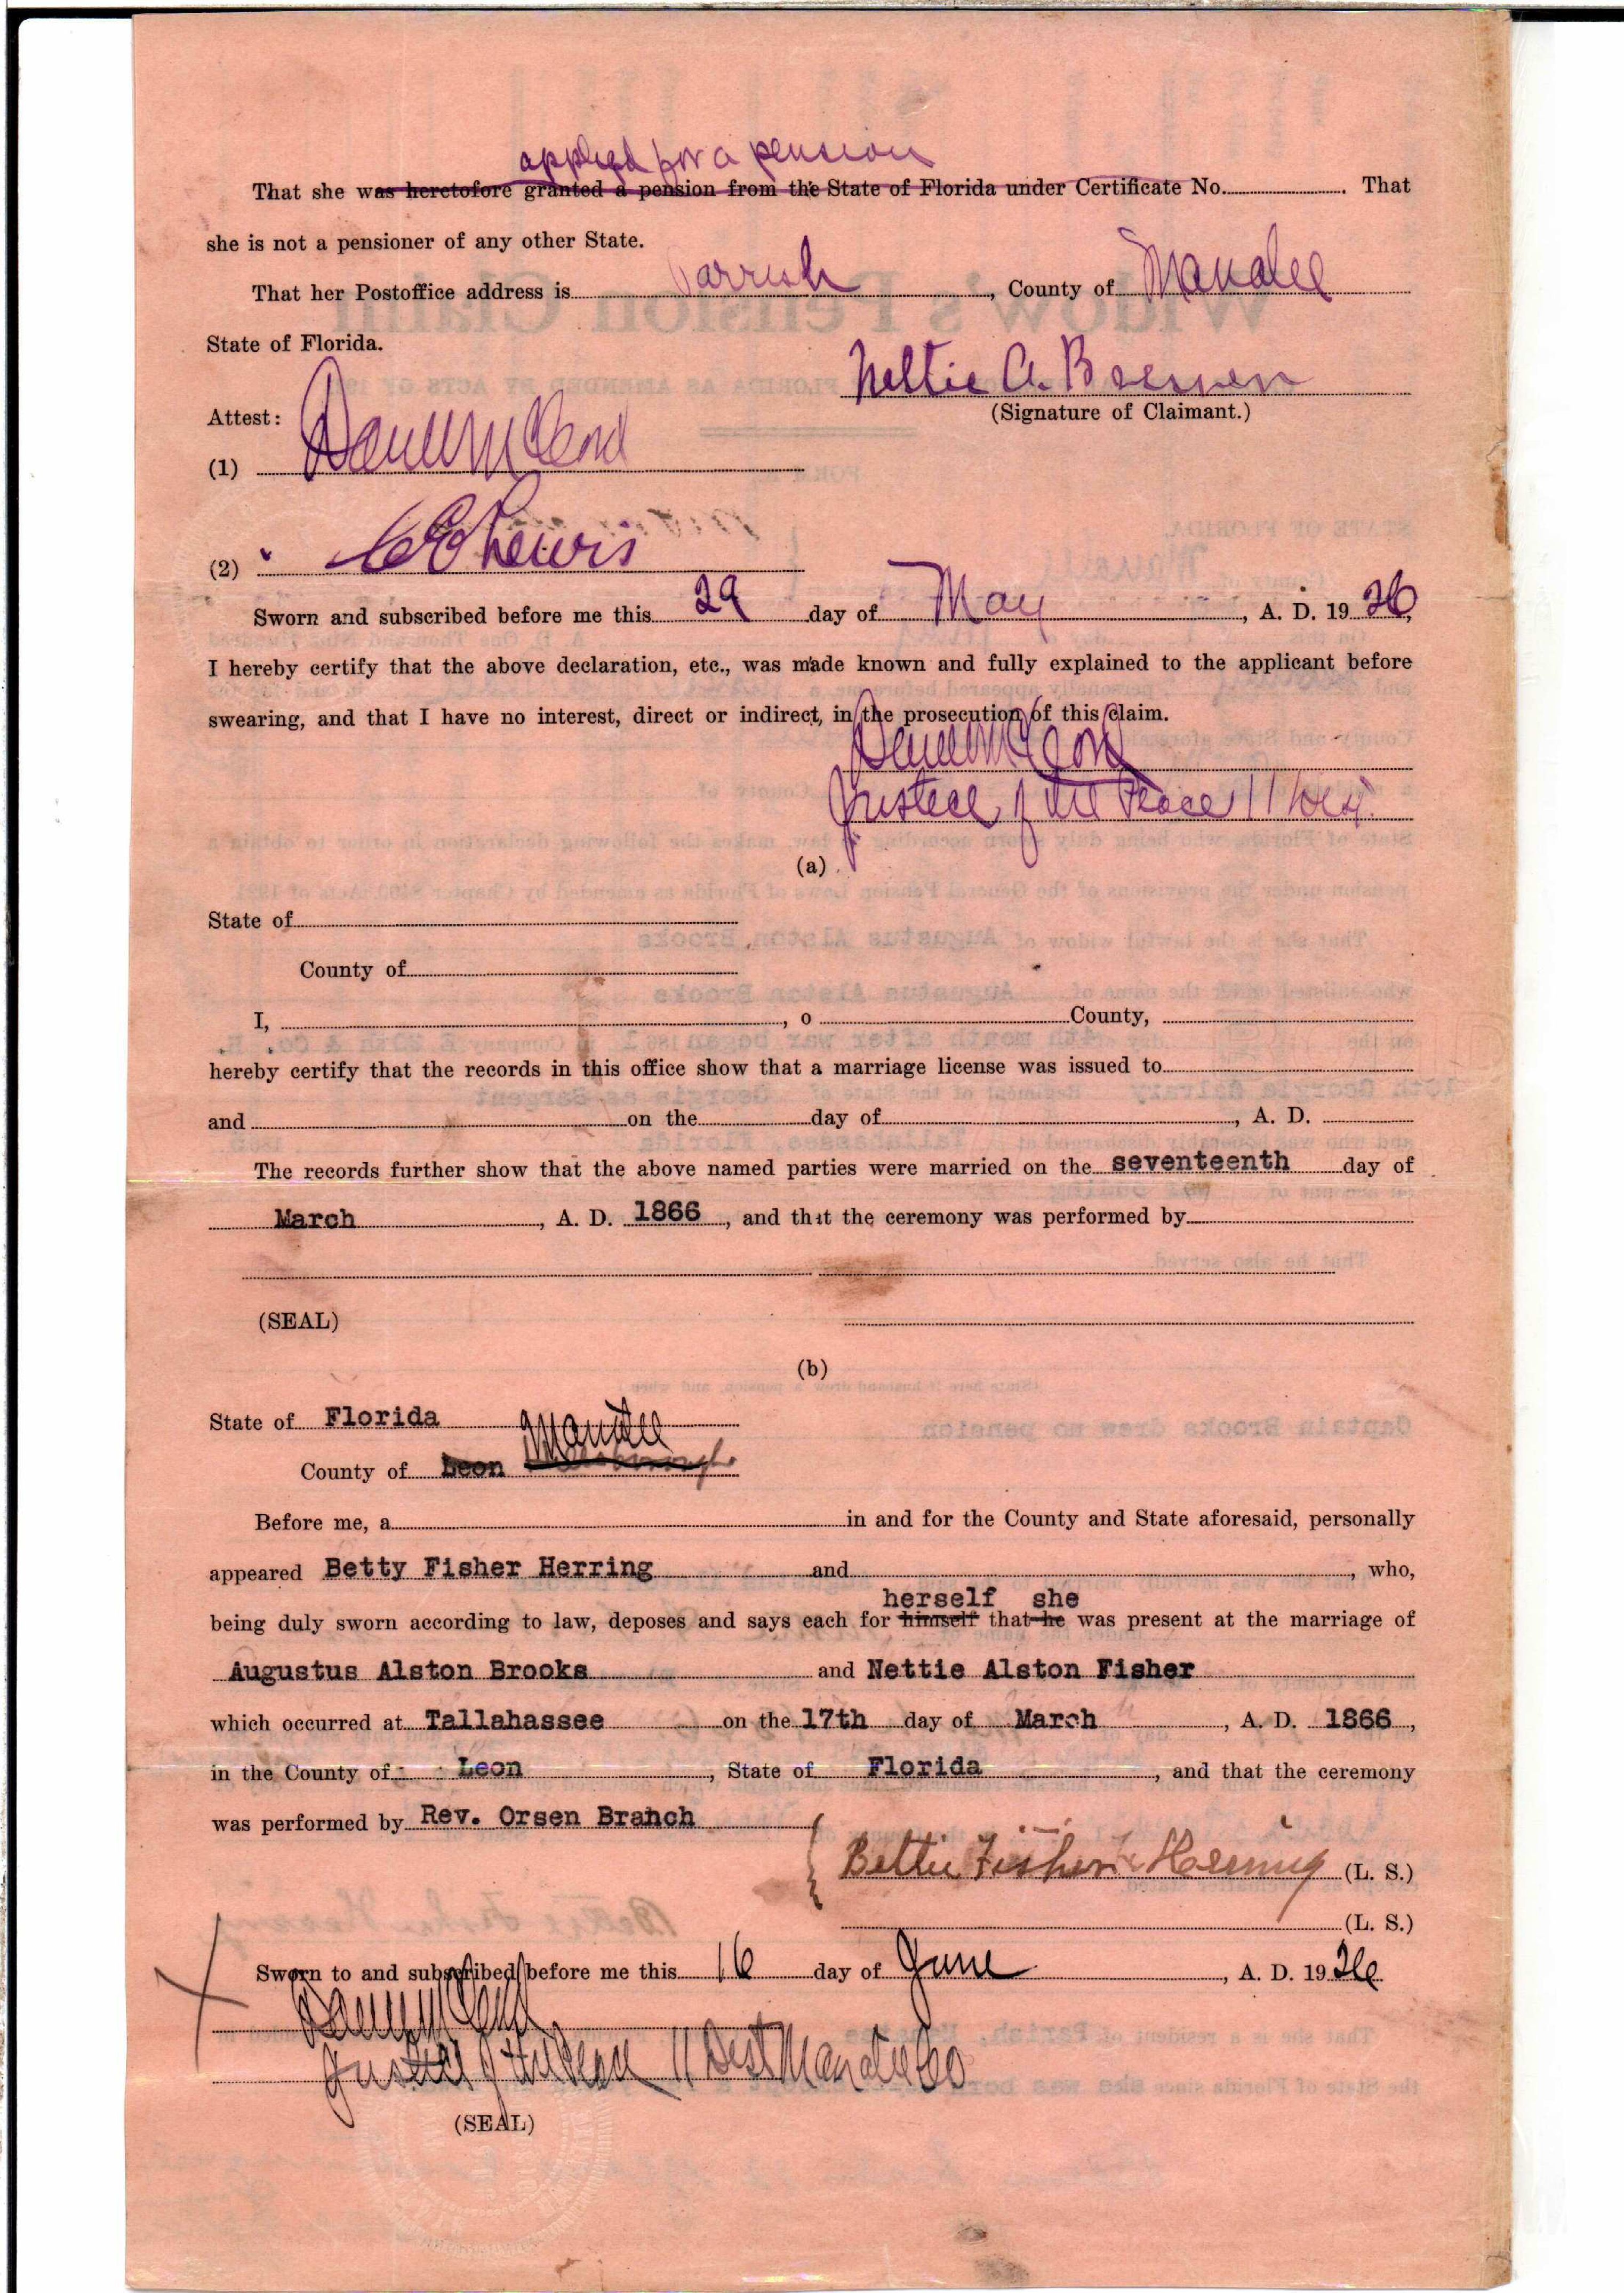 applied for a pension
That she was heretofore granted a pension from the State of Florida under Certificate No. That
she is not a pensioner of any other State.
That her Postoffice address is Parrish, County of Manatee
State of Florida.
Nettie A. Brooks
(Signature of Claimant.)
Attest:
(1)
(2) Lewis
Sworn and subscribed before me this 29 day of May, A. D. 1926,
I hereby certify that the above declaration, etc., was made known and fully explained to the applicant before
swearing, and that I have no interest, direct or indirect, in the prosecution of this claim.
Justice of the Peace 11 Dist.
(a)
State of
County of
I, , o County,
hereby certify that the records in this office show that a marriage license was issued to
and on the day of , A. D.
The records further show that the above named parties were married on the seventeenth day of
March, A. D. 1866, and that the ceremony was performed by
(SEAL)
(b)
State of Florida
Manatee
County of Leon Hillsborough
Before me, a in and for the County and State aforesaid, personally
appeared Betty Fisher Herring and , who,
herself she
being duly sworn according to law, deposes and says each for himself that he was present at the marriage of
Augustus Alston Brooks and Nettie Alston Fisher
which occurred at Tallahassee on the 17th day of March, A. D. 1866,
in the County of Leon, State of Florida, and that the ceremony
was performed by Rev. Orsen Branch
Bettie Fisher Herring (L. S.)
(L. S.)
Sworn to and subscribed before me this 16 day of June, A. D. 1926
Justice of the Peace 11 Dist Manatee Co
(SEAL)